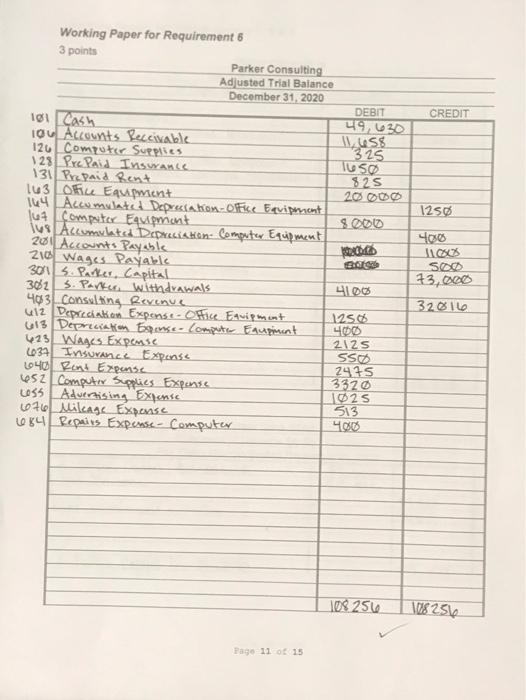 Working Paper for Requirement 6
3 points
Parker Consulting
Adjusted Trial Balance
December 31, 2020
DEBIT CREDIT
101 Cash 49,630
106 Accounts Receivable 11,658
126 Computer Supplies 325
128 PrePaid Insurance 1650
131 Prepaid Rent 825
163 Office Equipment 20000
164 Accumulated Depreciation-Office Equipment 1250
167 Computer Equipment 8000
168 Accumulated Depreciation-Computer Equipment 400
201 Accounts Payable 1100
210 Wages Payable 500
301 S. Parker, Capital 73,000
302 S. Parker, Withdrawals 4100
403 Consulting Revenue 32016
612 Depreciation Expense-Office Equipment 1250
613 Depreciation Expense-Computer Equipment 400
623 Wages Expense 2125
637 Insurance Expense 550
640 Rent Expense 2475
652 Computer Supplies Expense 3320
655 Advertising Expense 1025
676 Mileage Expense 513
684 Repairs Expense-Computer 400
108256 108256
Page 11 of 15